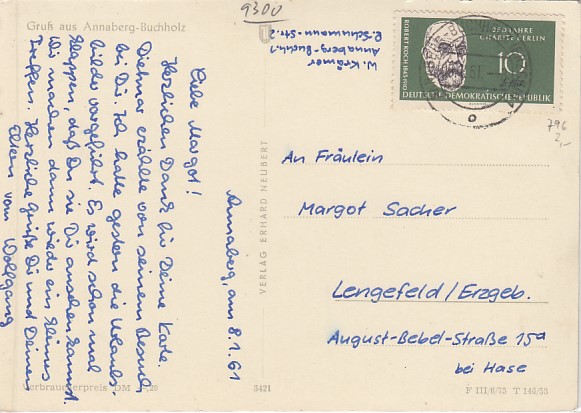 Gruß aus Annaberg-Buchholz
9300
W. Krämer
Annaberg-Buchh. 1
R.-Schumann-Str. 2
ROBERT KOCH 1843-1910
250 JAHRE
CHARITÉ BERLIN
10
DEUTSCHE DEMOKRATISCHE REPUBLIK
796
2,-
Annaberg, am 8.1.61
Liebe Margot!
Herzlichen Dank für Deine Karte.
Dietmar erzählte von seinem Besuch
bei Dir. Ich hatte gestern die Urlaubs-
bilder vorgeführt. Es wird schon mal
klappen, daß Du sie Dir ansehen kannst.
Wir machen dann wieder ein kleines
Treffen. Herzliche Grüße Dir und Deinen
Eltern vom Wolfgang
VERLAG ERHARD NEUBERT
An Fräulein
Margot Sacher
Lengefeld/Erzgeb.
August-Bebel-Straße 15a
bei Hase
Verbraucherpreis DM
3421
F III/6/75 T 146/58